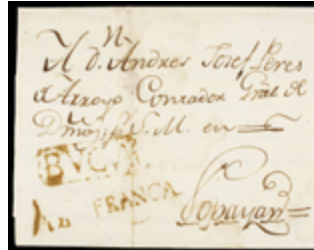 A d.n Andres Josef Peres
d Arroyo Contador Gral de
S.M. en
BVGA
FRANCA
Popayan